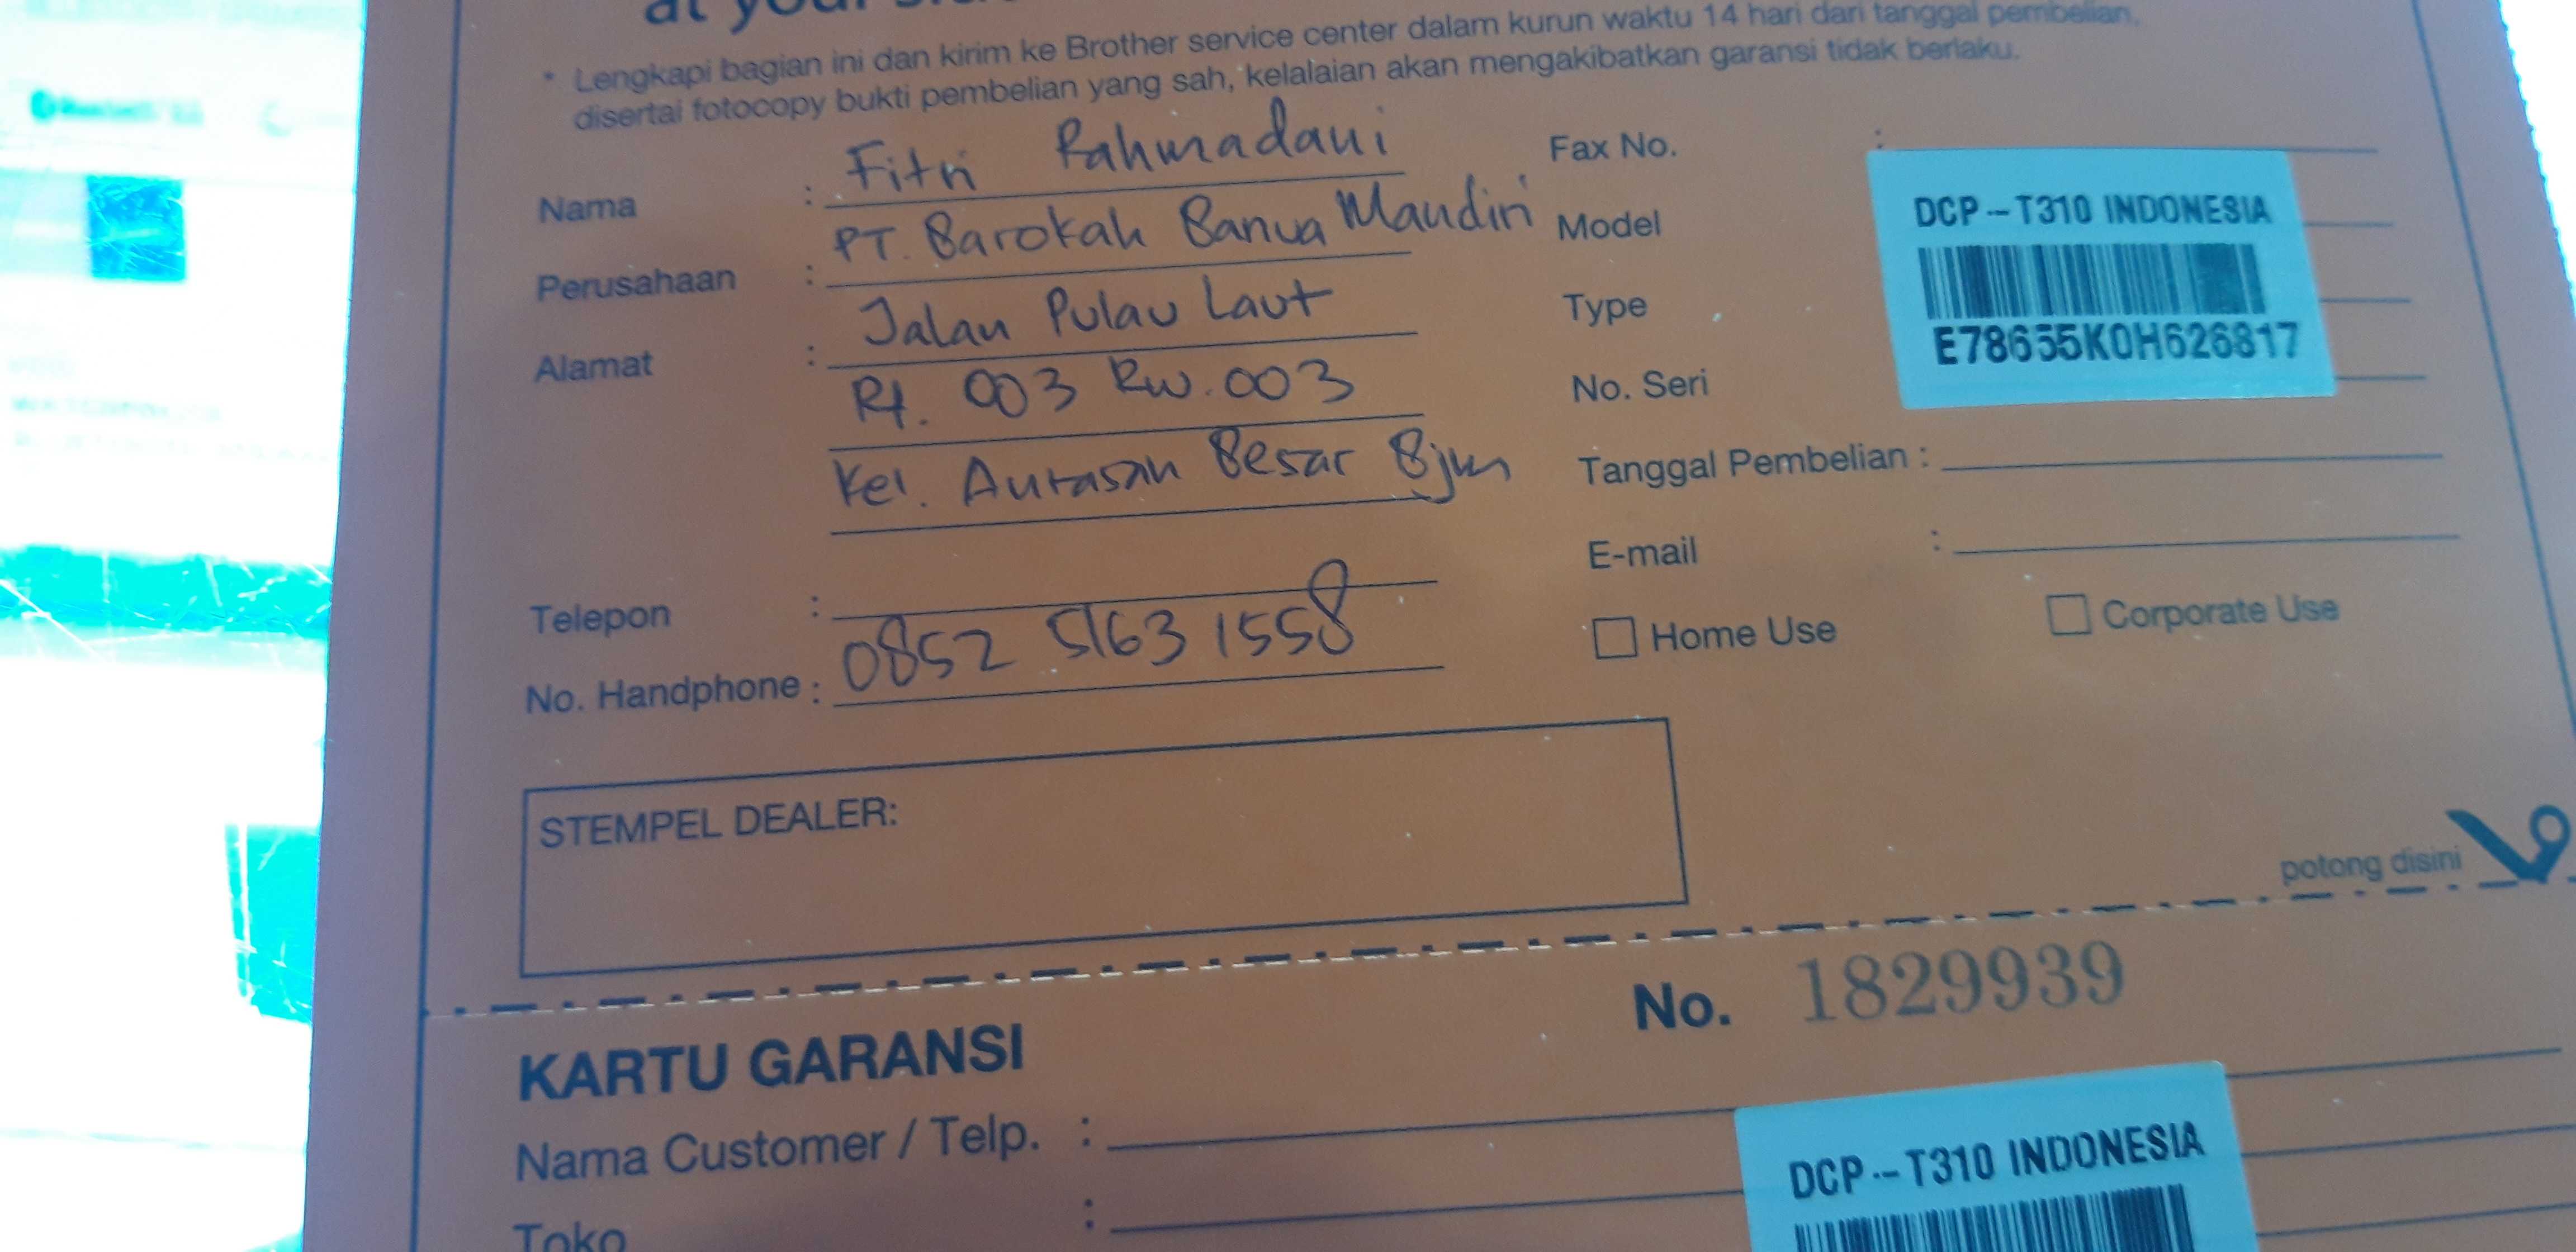 at your side
* Lengkapi bagian ini dan kirim ke Brother service center dalam kurun waktu 14 hari dari tanggal pembelian,
disertai fotocopy bukti pembelian yang sah, kelalaian akan mengakibatkan garansi tidak berlaku.
Nama : Fitri Rahmadani
Perusahaan : PT. Barokah Banua Mandiri
Alamat : Jalan Pulau Laut
Rt. 003 Rw. 003
Kel. Antasan Besar Bjm
Telepon :
No. Handphone : 0852 5163 1558
Fax No. :
Model
Type
No. Seri
DCP-T310 INDONESIA
E78655K0H626817
Tanggal Pembelian :
E-mail :
Home Use
Corporate Use
STEMPEL DEALER:
potong disini
KARTU GARANSI
No. 1829939
Nama Customer / Telp. :
Toko :
DCP-T310 INDONESIA